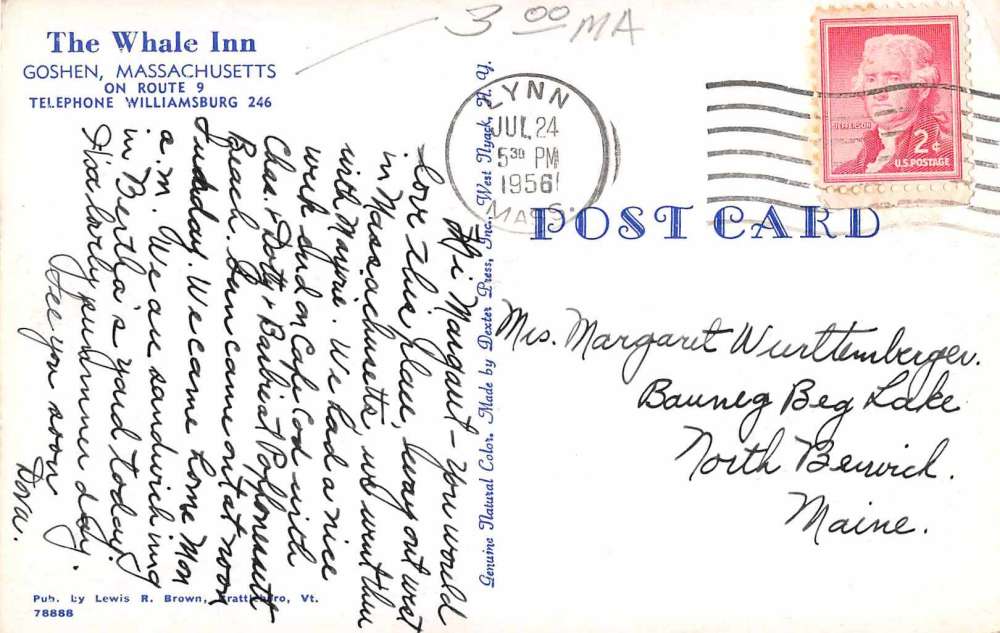 3 00 MA
The Whale Inn
GOSHEN, MASSACHUSETTS
ON ROUTE 9
TELEPHONE WILLIAMSBURG 246
Hi Margaret - You would
love this place, 'way out west
in Massachusetts, we went thru
with Marjorie. We had a nice
week end on Cape Cod with
Chas. + Doty + Barb at Popponesett
Beach. Sun came out at noon
Sunday. We came home Mon
a.m. We are sandwiching
in Bertha's yard today.
It's a lovely summer day.
See you soon
Dora.
Pub. by Lewis R. Brown, Brattleboro, Vt.
78888
Genuine Natural Color. Made by Dexter Press, Inc., West Nyack, N. Y.
LYNN
JUL 24
5 30 PM
1956
MASS.
JEFFERSON
2¢
U.S. POSTAGE
POST CARD
Mrs. Margaret Wurttemberger.
Bauneg Beg Lake
North Berwick.
Maine.